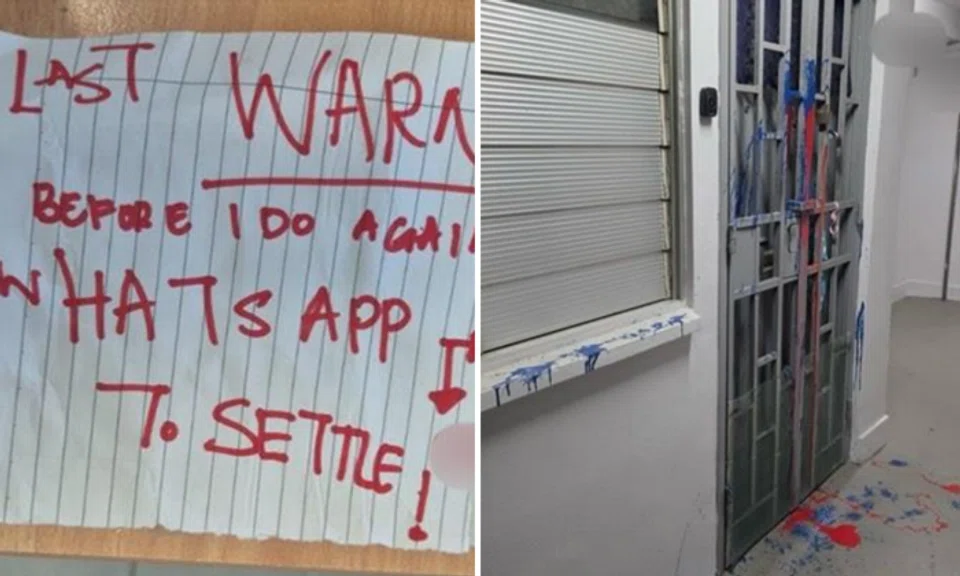 LAST WARN
BEFORE I DO AGAI
WHATS APP
TO SETTLE!